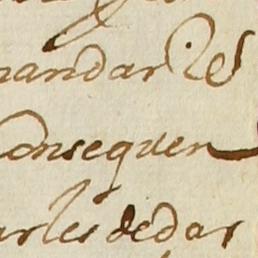 mandar
Consequen
arles dedar